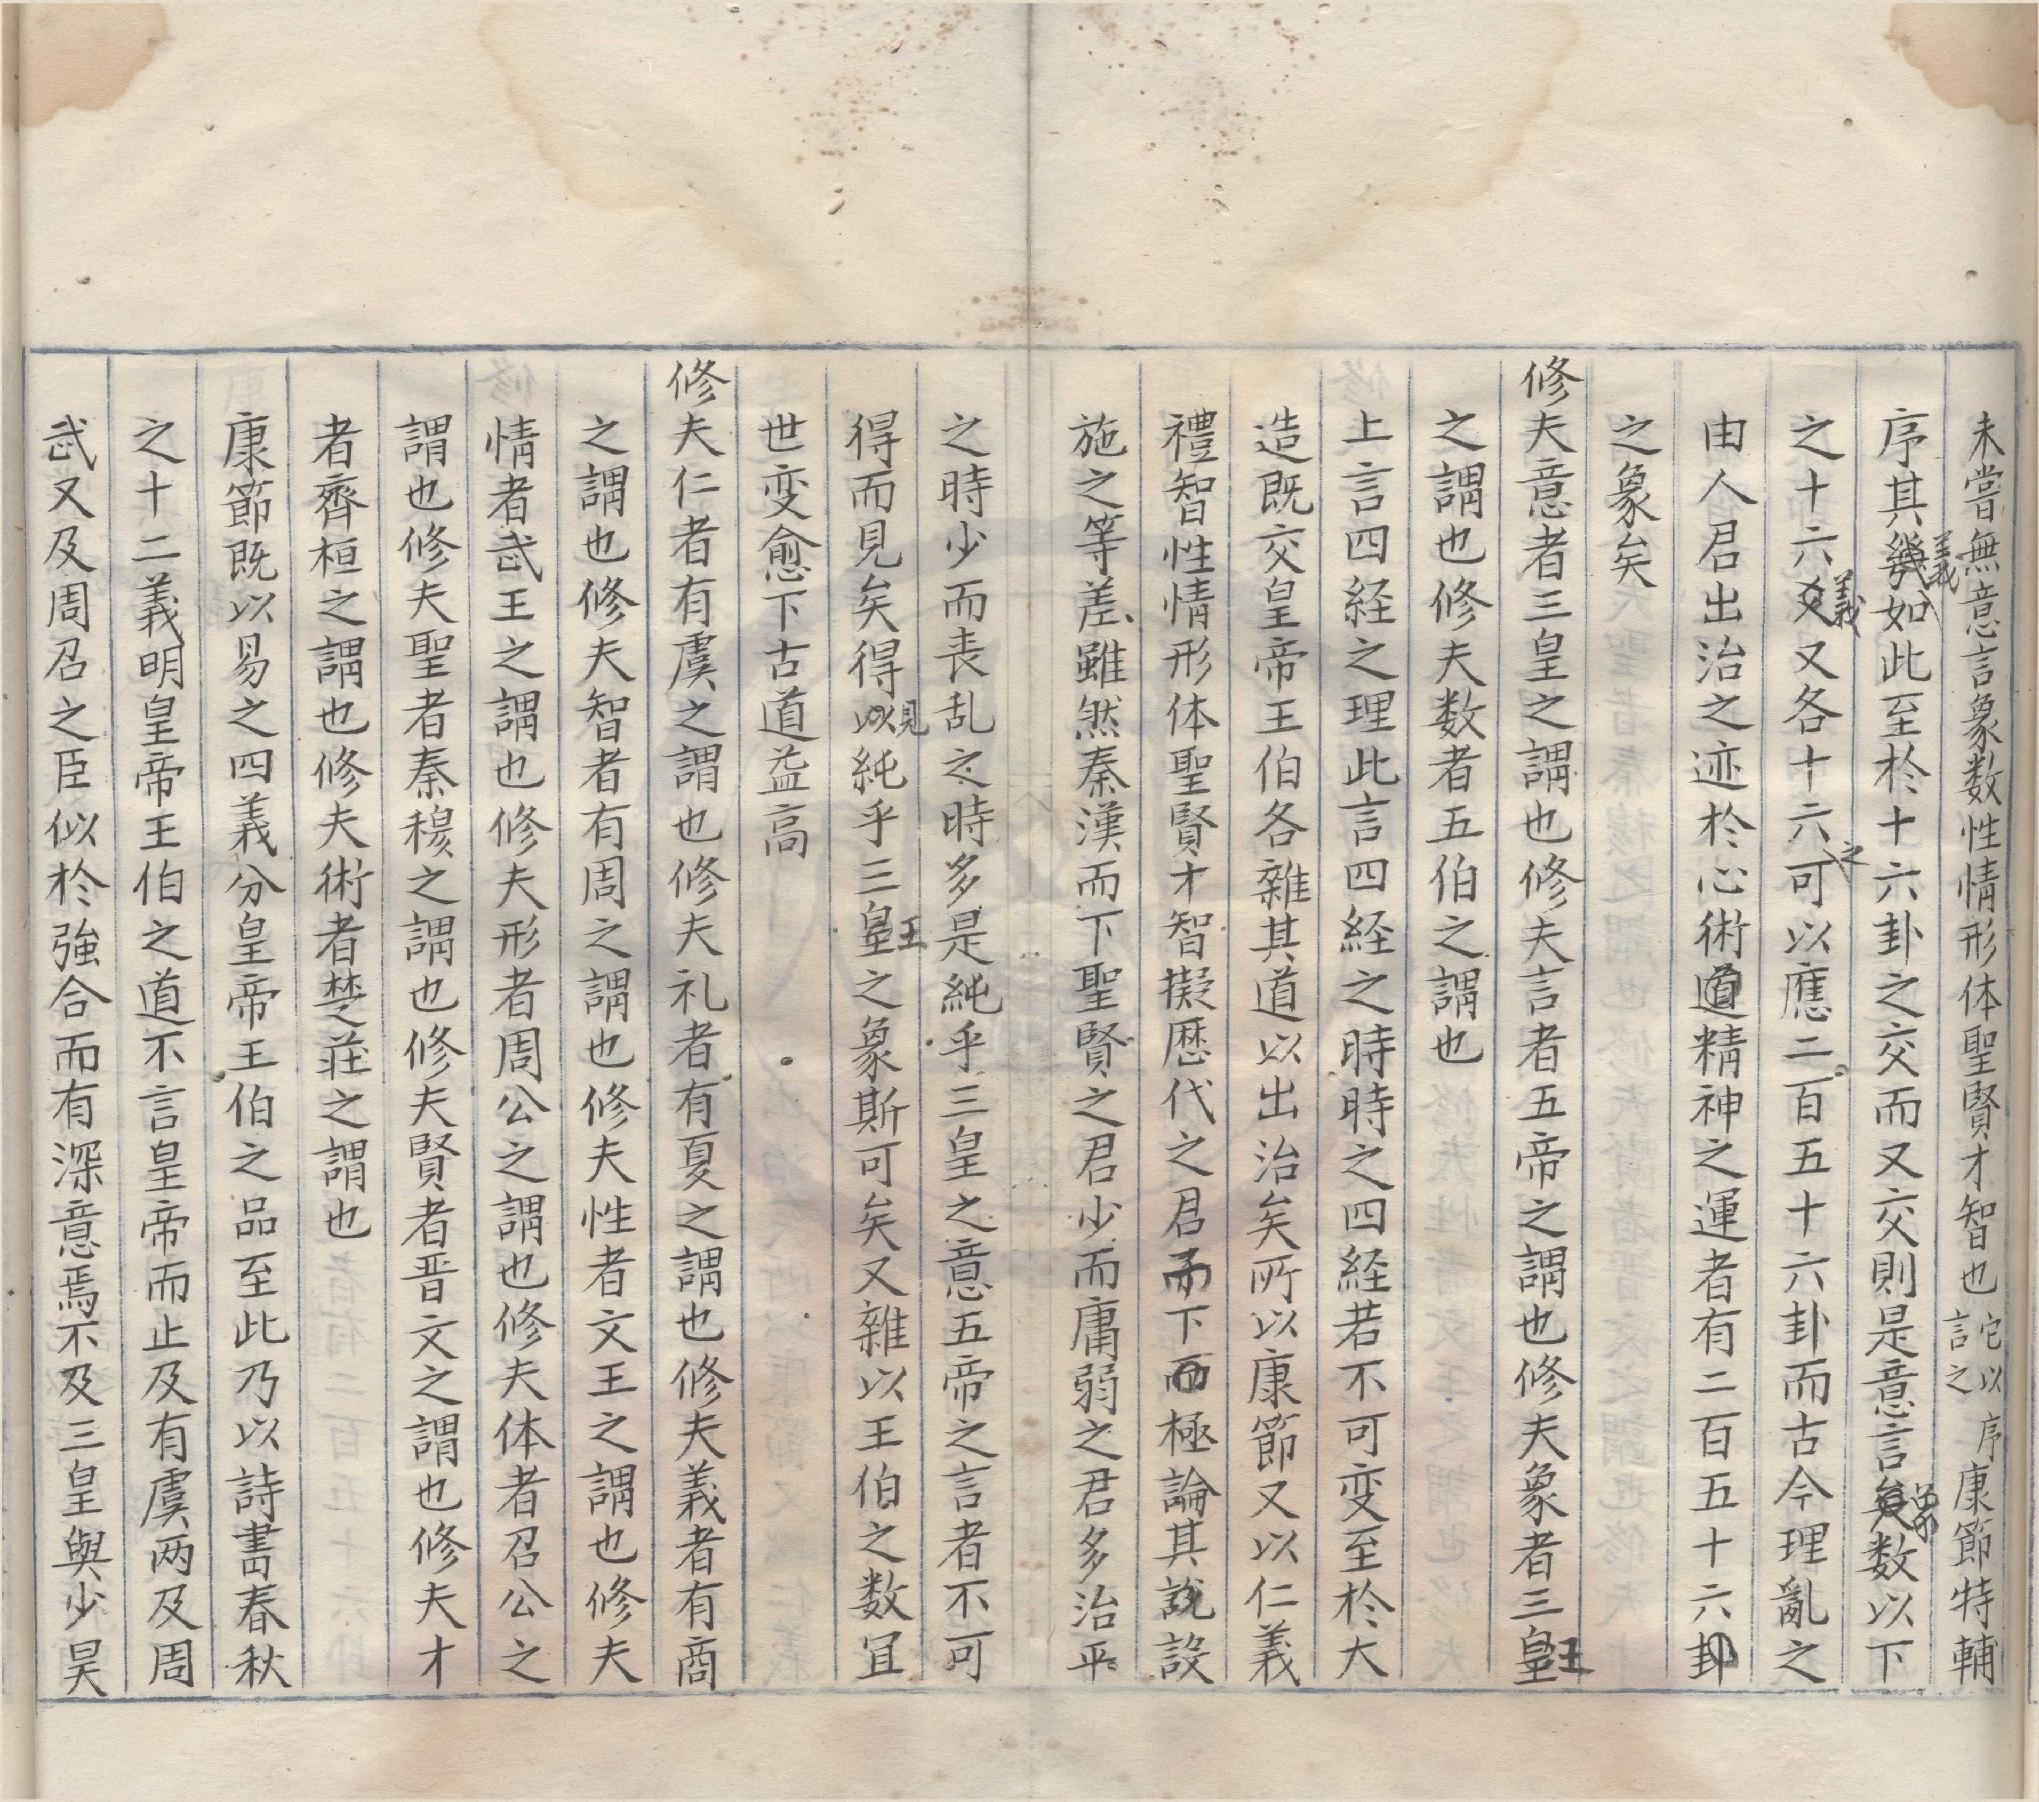 未嘗無意言象数性情形体聖賢才智也它以言之序康節特輔
序其義如此至於十六卦之交而又交則是意言象数以下
之十六義又各十六之可以應二百五十六卦而古今理亂之
由人君出治之迹於心術通精神之運者有二百五十六卦
之象矣
修夫意者三皇之謂也修夫言者五帝之謂也修夫象者三王
之謂也修夫数者五伯之謂也
上言四経之理此言四経之時時之四経若不可变至於大
造既交皇帝王伯各雜其道以出治矣所以康節又以仁義
禮智性情形体聖賢才智擬歷代之君而下而極論其説設
施之等差雖然秦漢而下聖賢之君少而庸弱之君多治平
之時少而丧乱之時多是純乎三皇之意五帝之言者不可
得而見矣得見純乎三王之象斯可矣又雜以王伯之数宜
世变愈下古道益高
修夫仁者有虞之謂也修夫礼者有夏之謂也修夫義者有商
之謂也修夫智者有周之謂也修夫性者文王之謂也修夫
情者武王之謂也修夫形者周公之謂也修夫体者召公之
謂也修夫聖者秦穆之謂也修夫賢者晋文之謂也修夫才
者齊桓之謂也修夫術者楚莊之謂也
康節既以易之四義分皇帝王伯之品至此乃以詩書春秋
之十二義明皇帝王伯之道不言皇帝而止及有虞两及周
武又及周召之臣似於強合而有深意焉不及三皇與少昊